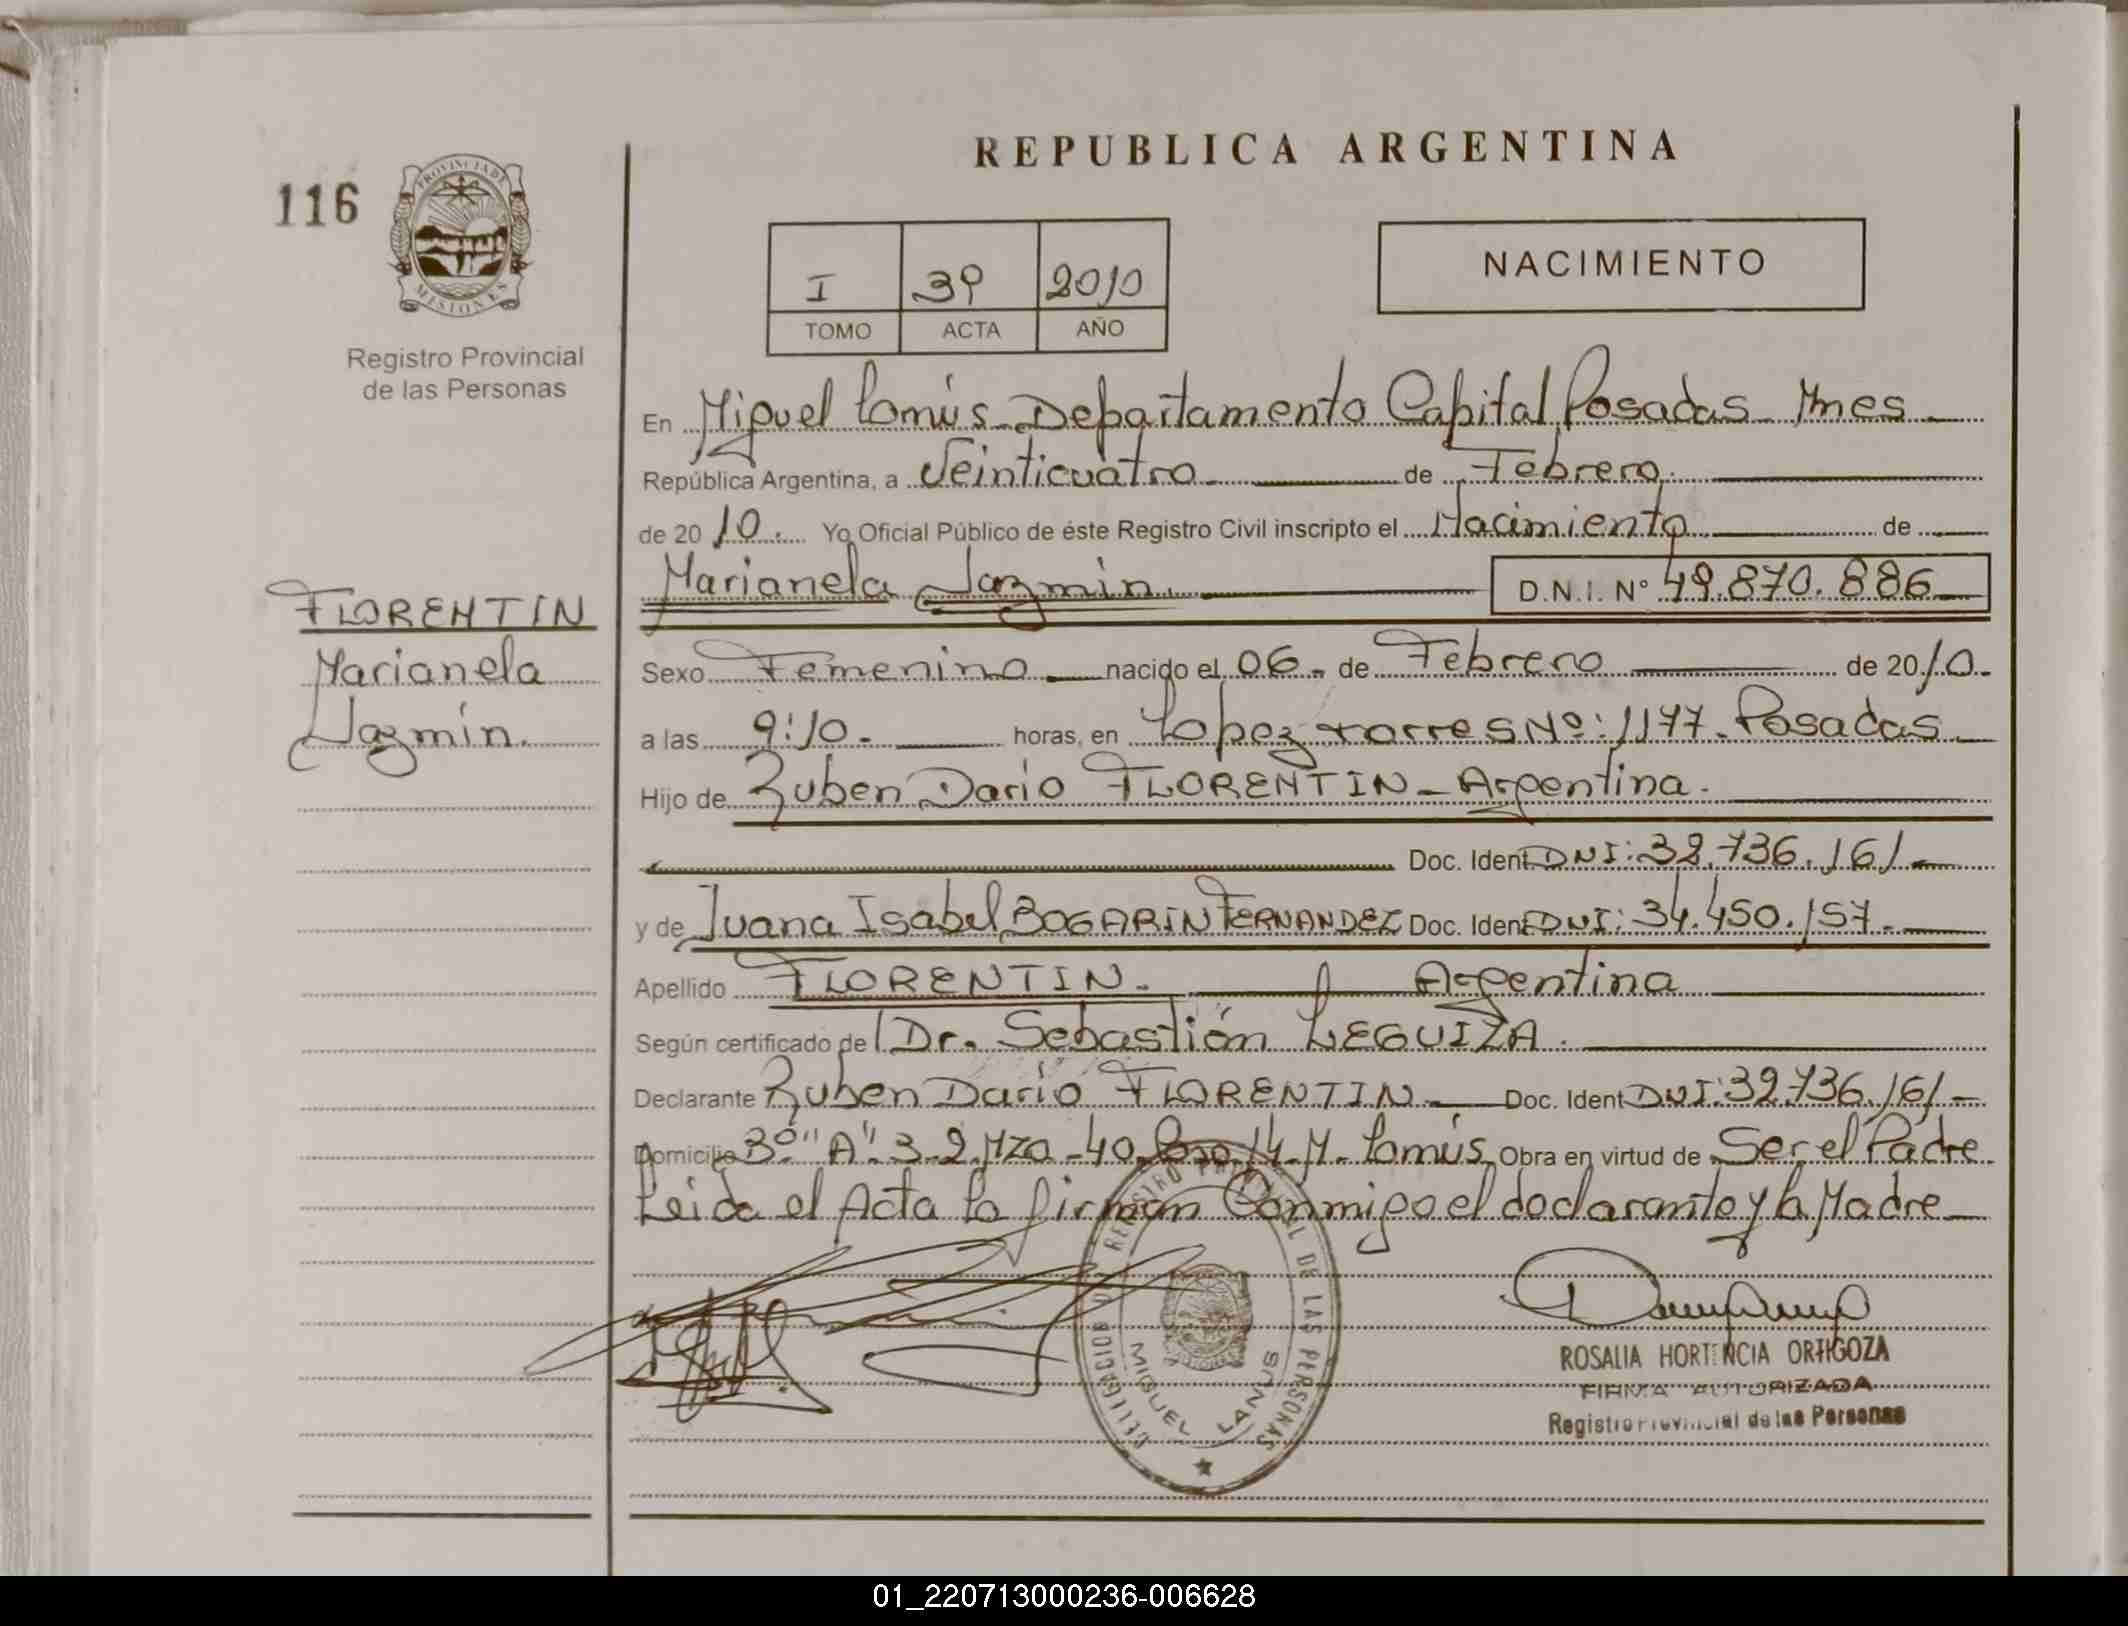 REPUBLICA ARGENTINA
116
PROVINCIA DE
MISIONES
Registro Provincial
de las Personas
I 39 2010
TOMO ACTA AÑO
NACIMIENTO
En Miguel Lanús Departamento Capital Posadas Mnes
República Argentina, a Veinticuatro de Febrero.
de 2010. Yo Oficial Público de éste Registro Civil inscripto el Nacimiento de
Marianela Jazmin. D.N.I. Nº 49.870.886
FLORENTIN
Marianela
Jazmín.
Sexo Femenino nacido el 06. de Febrero de 2010.
a las 9:10. horas, en Lopez torres Nº: 1177. Posadas
Hijo de Ruben Dario FLORENTIN - Argentina.
Doc. Ident. DNI: 32.736.161
y de Juana Isabel BOGARIN FERNANDEZ Doc. Ident. DNI: 34.450.157.
Apellido FLORENTIN. Argentina
Según certificado de Dr. Sebastián LEGUIZA.
Declarante Ruben Dario FLORENTIN Doc. Ident DNI: 32.736.161
Domicilio 3º "A" 3-2 Mza - 40 14-M. Lanús Obra en virtud de Ser el Padre
Leida el Acta la firman Conmigo el declarante y la Madre
DELEGACION DE REGISTRO PROVINCIAL DE LAS PERSONAS
MIGUEL LANUS
ROSALIA HORTENCIA ORTIGOZA
FIRMA AUTORIZADA
Registro Provincial de las Personas
01_220713000236-006628